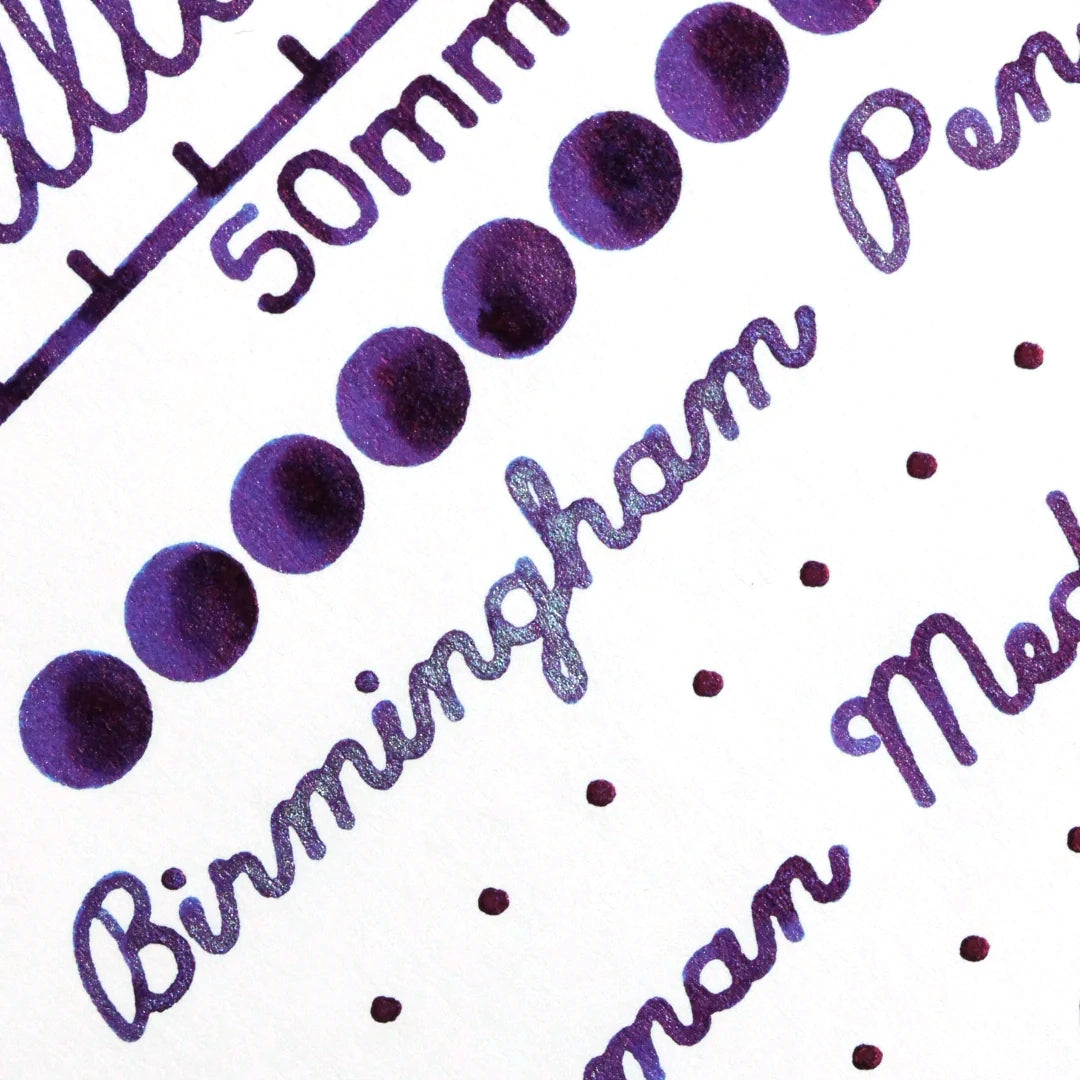 50mm
Birmingham
Pen
Med
man